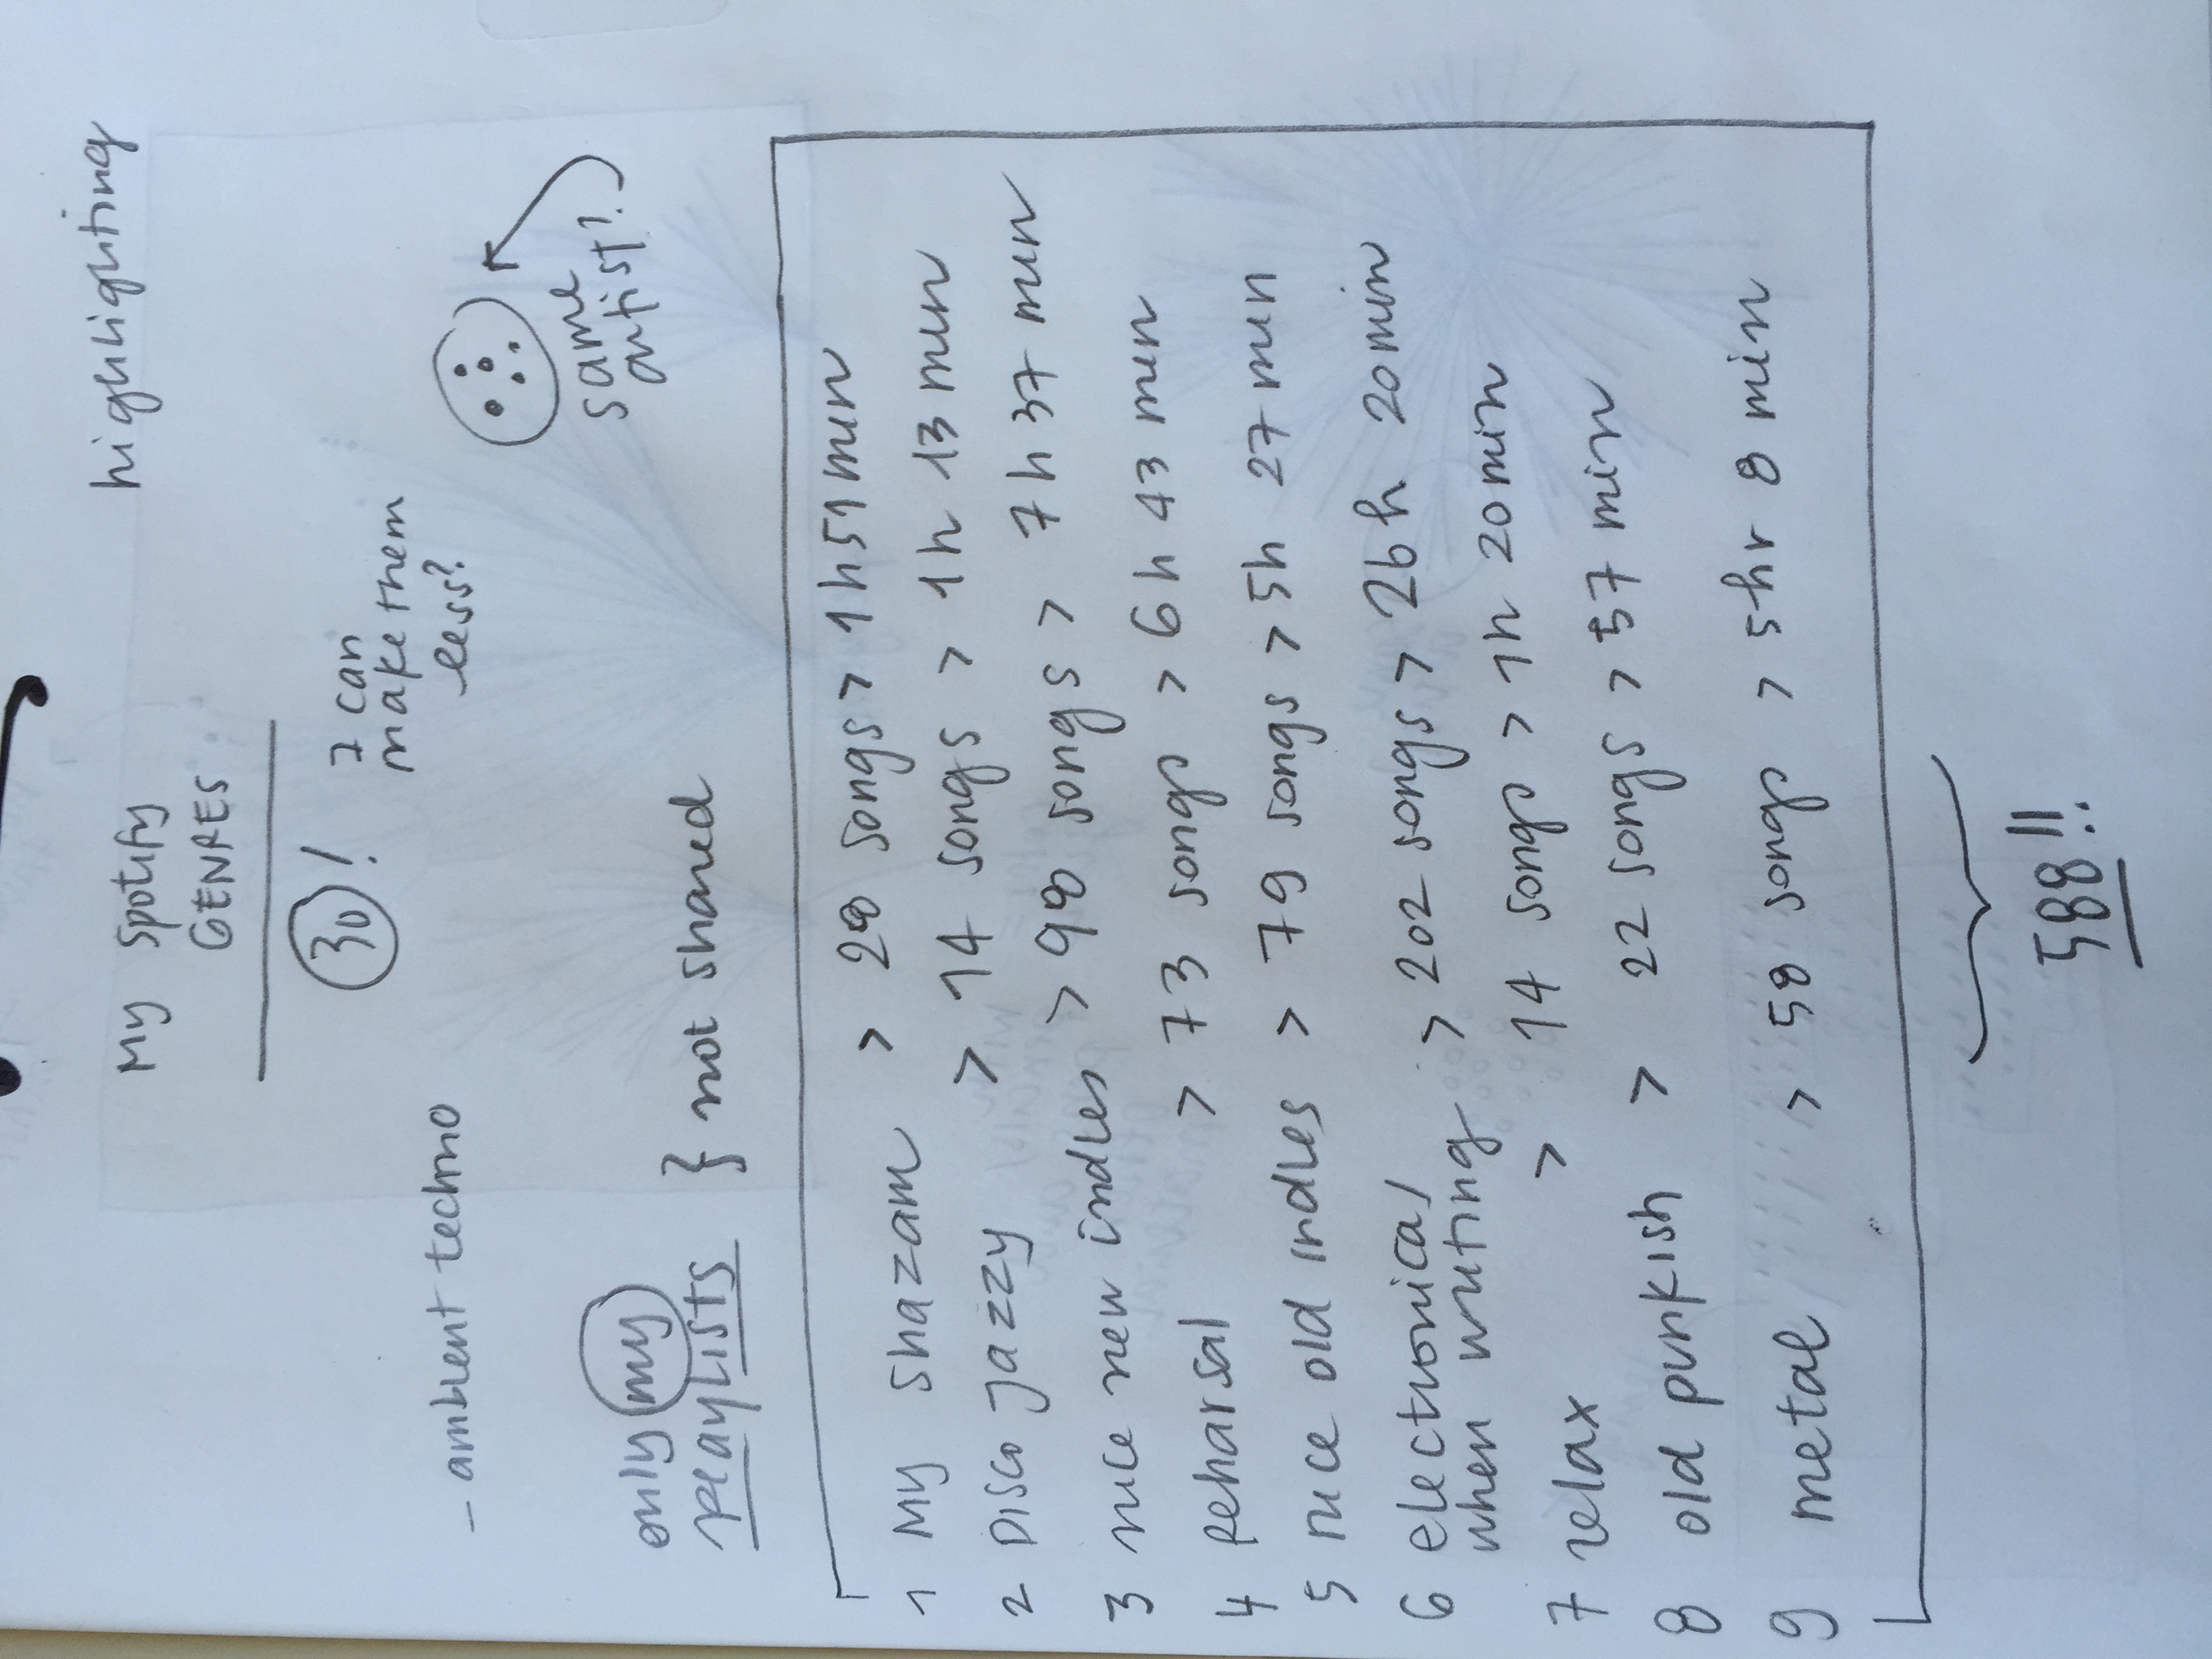 My Spotify
GENRES
highlighting
30!
I can
make them
less?
- ambient techno
same
artist?
only my
playlists } not shared
1 My Shazam > 28 songs > 1h 51 min
2 Disco Jazzy > 14 songs > 1h 13 min
3 nice new indies > 98 songs > 7h 37 min
4 Reharsal > 73 songs > 6h 43 min
5 nice old indies > 79 songs > 5h 27 min
6 electronical/ > 202 songs > 26h 20 min
when writing
7 relax > 14 songs > 1h 20 min
8 old punkish > 22 songs > 57 min
9 metal > 58 songs > 5hr 8 min
588!!